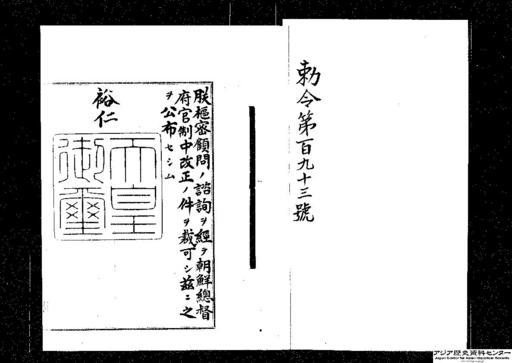 勅令第百九十三號
朕樞密顧問ノ諮詢ヲ經テ朝鮮總督
府官制中改正ノ件ヲ裁可シ茲ニ之
ヲ公布セシム
裕仁
天皇御璽
アジア歴史資料センター
Japan Center for Asian Historical Records